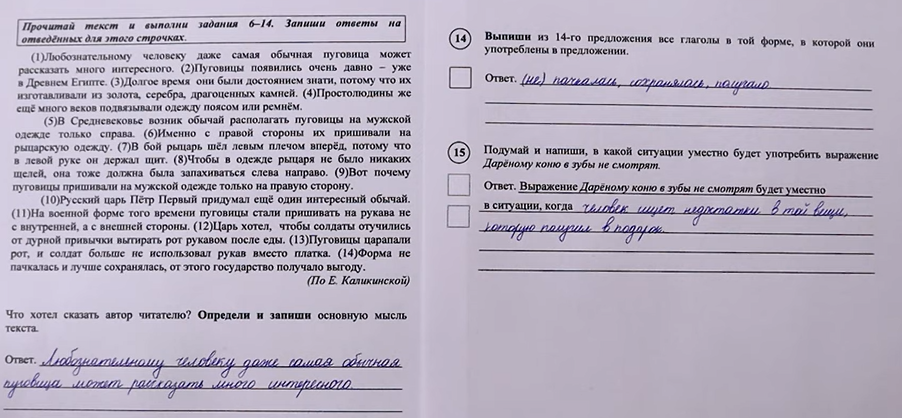 Прочитай текст и выполни задания 6–14. Запиши ответы на
отведённых для этого строчках.
(1)Любознательному человеку даже самая обычная пуговица может
рассказать много интересного. (2)Пуговицы появились очень давно – уже
в Древнем Египте. (3)Долгое время они были достоянием знати, потому что их
изготавливали из золота, серебра, драгоценных камней. (4)Простолюдины же
ещё много веков подвязывали одежду поясом или ремнём.
(5)В Средневековье возник обычай располагать пуговицы на мужской
одежде только справа. (6)Именно с правой стороны их пришивали на
рыцарскую одежду. (7)В бой рыцарь шёл левым плечом вперёд, потому что
в левой руке он держал щит. (8)Чтобы в одежде рыцаря не было никаких
щелей, она тоже должна была запахиваться слева направо. (9)Вот почему
пуговицы пришивали на мужской одежде только на правую сторону.
(10)Русский царь Пётр Первый придумал ещё один интересный обычай.
(11)На военной форме того времени пуговицы стали пришивать на рукава не
с внутренней, а с внешней стороны. (12)Царь хотел, чтобы солдаты отучились
от дурной привычки вытирать рот рукавом после еды. (13)Пуговицы царапали
рот, и солдат больше не использовал рукав вместо платка. (14)Форма не
пачкалась и лучше сохранялась, от этого государство получало выгоду.
(По Е. Каликинской)
Что хотел сказать автор читателю? Определи и запиши основную мысль
текста.
Ответ. Любознательному человеку даже самая обычная
пуговица может рассказать много интересного.
14
Выпиши из 14-го предложения все глаголы в той форме, в которой они
употреблены в предложении.
Ответ. (не) пачкалась, сохранялась, получало
15
Подумай и напиши, в какой ситуации уместно будет употребить выражение
Дарёному коню в зубы не смотрят.
Ответ. Выражение Дарёному коню в зубы не смотрят будет уместно
в ситуации, когда человек ищет недостатки в той вещи,
которую получил в подарок.